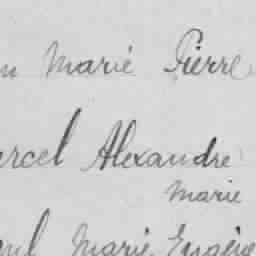 Marie Pierre
Alexandre
Marie
Marie Eugène